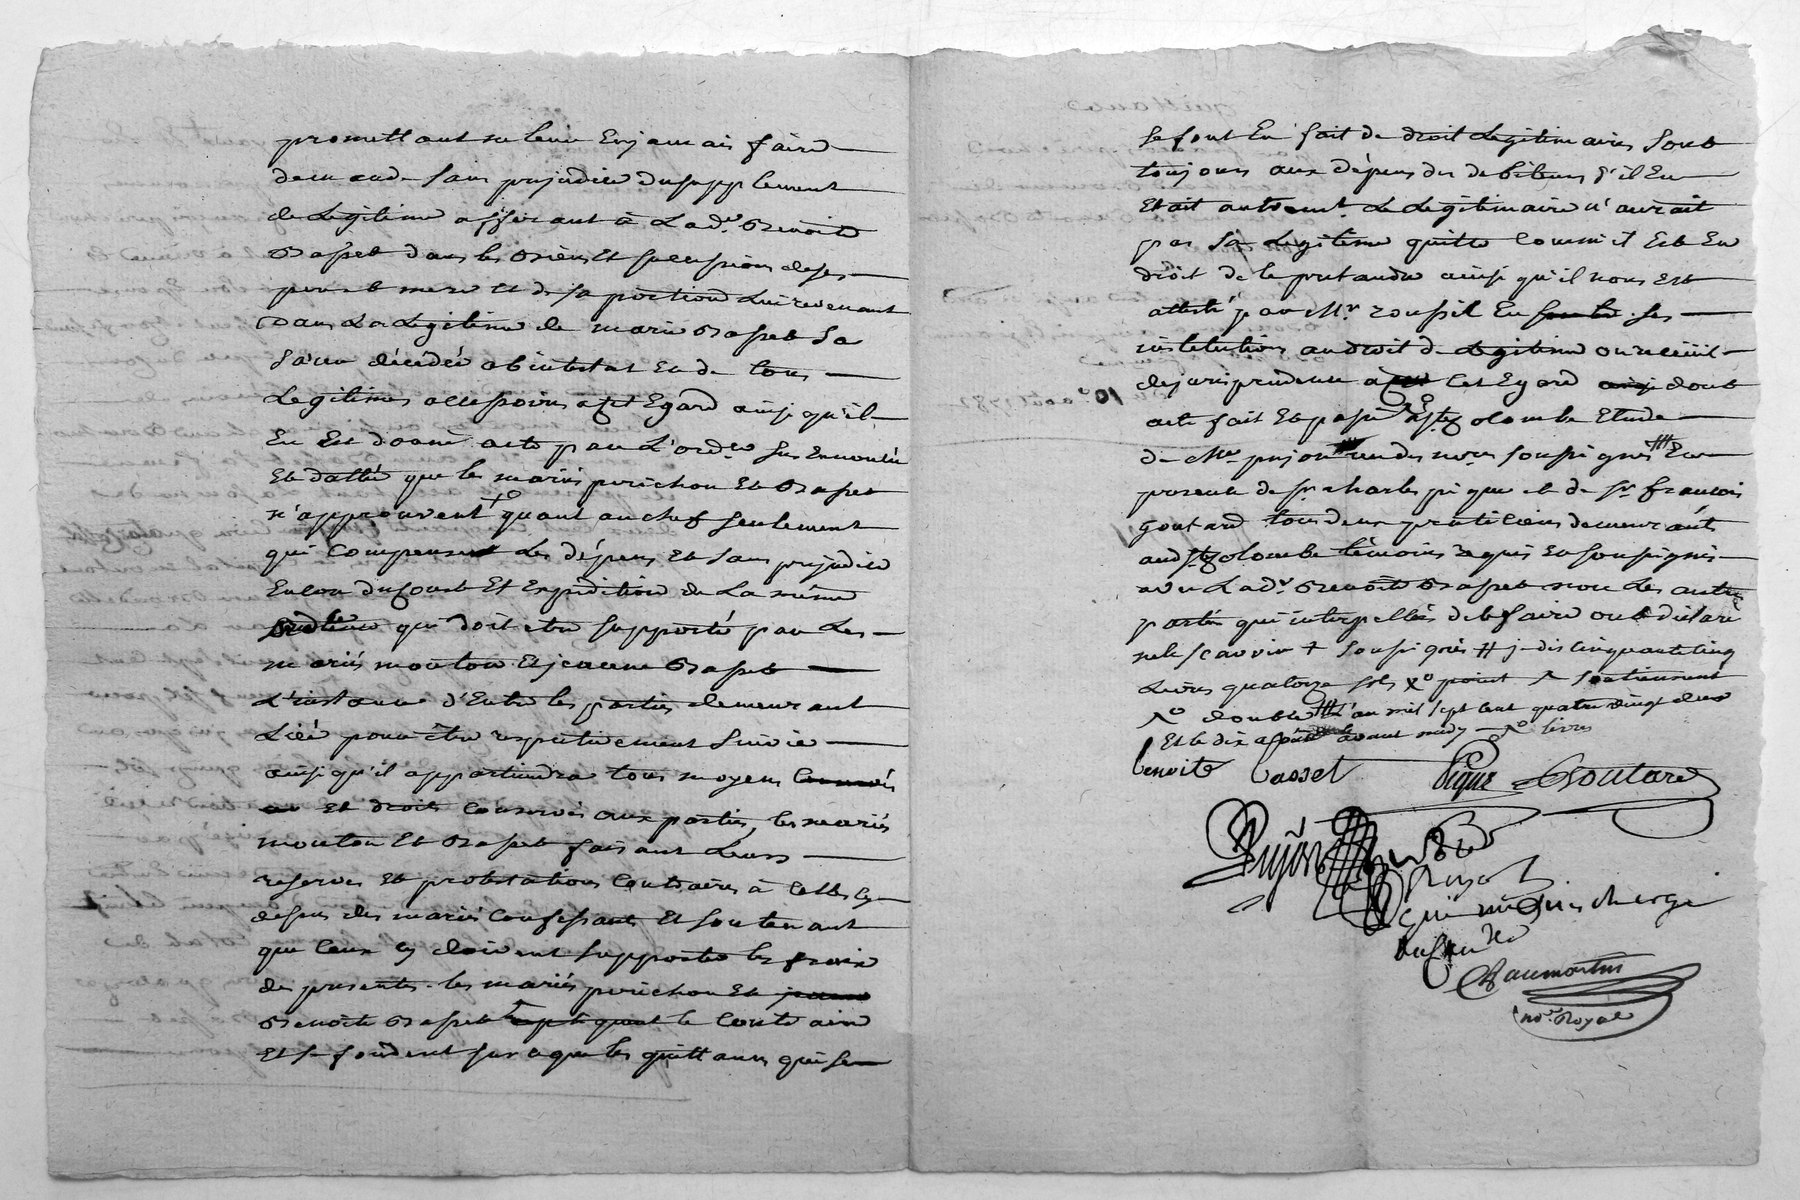 promettant ne leur En jamais faire
demande sans prejudice du supplement
de Legitime afferant à Lade. Benoite
Basset dans les Biens Et successions de ses
pere et mere et de sa portion Lui revenant
Dans La Legitime de marie Basset Sa
Sœur décédée abintestat Et de tous
Legitimes accessoires a cet Egard ainsi qu'il
En Est donné acte par L'ordce sus Enoncée
Et dattée que les mariés perichon Et Basset
n'approuvent quant au chef seulement
qui compense Les dépens Et sans prejudice
Encore du cout Et Expedition de La même
qui doit etre supporté par Les
mariés mouton Et jeanne Basset
L'instance d'Entre les parties demeurant
Liée pour être respectivement suivie
ainsi qu'il appartiendra tous moyens
Et droits conservés aux parties, les mariés
mouton Et Basset faisant Leurs
reserves Et protestations Contraires à celles cy
dessus des mariés confessants Et soutenant
que ceux cy doivent supporter les fraix
des presentes. les mariés perichon Et
Benoite Basset le Contraire
Et se fondent sur ce que les quittances qui se
se font En fait de droit Legitimaires sont
toujours aux dépens des debiteurs s'il En
Etait autrement Le Legitimaire n'aurait
pas sa Legitime quitte comme il Est En
droit de la pretendre ainsi qu'il nous Est
attesté par Mr. roussil En ses
institutions au droit de Legitime ou recüeil
de jurisprudence a cet Egard dont
acte fait Et passé a Ste Colombe Etude
de Me. pujon un des nores soussignés En
presence de sr. charles pique et de sr. francois
goutard tous deux praticiens demeurants
aud Ste Colombe témoins requis Et soussignés
avec Lade. Benoite Basset non Les autres
parties qui interpellées de le faire ont déclaré
ne le scavoir + soussignés # j. dis cinquante cinq
Livres quatorze sols xo point soutiennent
double L'an mil sept cent quatre vingt deux
Et le dix avant midy livres
benoite basset Pique Goutard
Pujon
Chaumartin
nore. Royal
10e. aout 1782